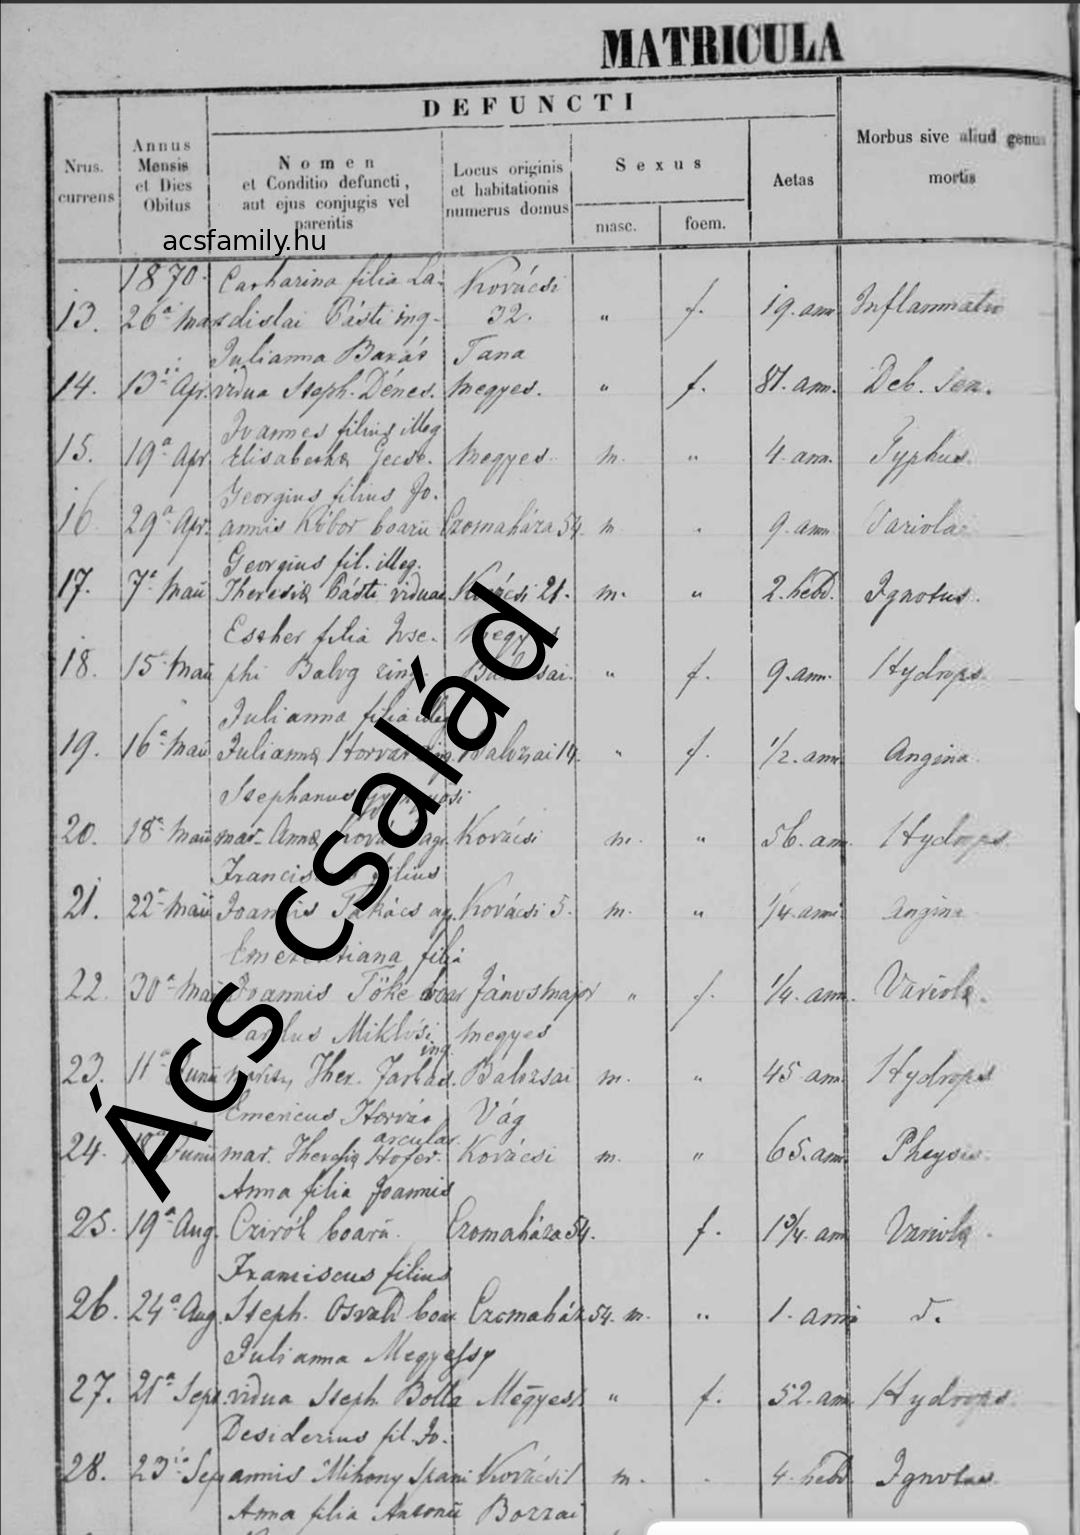 MATRICULA
DEFUNCTI
Nrus.
currens
Annus
Mensis
et Dies
Obitus
Nomen
et Conditio defuncti,
aut ejus conjugis vel
parentis
Locus originis
et habitationis
numerus domus
Sexus
masc.
foem.
Aetas
Morbus sive aliud genus
mortis
acsfamily.hu
1870. Catharina filia La- Kovácsi
13. 26a dislai Pásti inq- 32. " f. 19. ann. Inflammatio
Julianna Tana
14. 13 Apr. vidua Steph. Dénes. Megyes. " f. 81. ann. Deb. sen.
Joannes filius illeg
15. 19a Apr. Elisabethæ Megyes. m. " 4. ann. Typhus.
Georgius filius Jo-
16 29a Apr. annis Czomaháza 54. m 9. ann. Variola
Georgius fil. illeg.
17. 7a Maii Theresiæ Pásti viduae Kovácsi 21. m. " 2. hebd. Ignotus.
Esther filia Jose- Megyes
18. 15 Maii phi Balog " f. 9. ann. Hydrops.
Julianna filia
19. 16a Maii Juliannæ 14. " f. 1/2. ann. Angina.
Stephanus
20. 18a Maii mar. Annæ Kovácsi m. " 56. ann. Hydrops.
Franciscus filius
21. 22a Maii Joannis Takács ag. Kovácsi 5. m. " 1/4. anni Angina
Emerentiana filia
22. 30a Maii Joannis Töke Jánosmajor " f. 1/4. ann. Variola.
Carolus Miklósi Megyes
inq.
23. 11a Junii Ther. Balozsai m. " 45. ann. Hydrops
Emericus Horvát Vág
arcular.
24. Junii mar. Hofer. Kovácsi m. " 65. ann.
Anna filia Joannis
25. 19a Aug. Czirók boarii. Czomaháza 54. f. 1 3/4. ann. Variola.
Franciscus filius
26. 24a Aug. Steph. Osvald boar. Czomaház 54. m. " 1. anni
Julianna Megyessy
27. 21a Sept. vidua Steph. Bolla " f. 52. ann. Hydrops.
Desiderius fil. Jo-
28. 23 annis Mihony m. 4. hebd. Ignotus
Anna filia Antonii Bozzai
Ács család